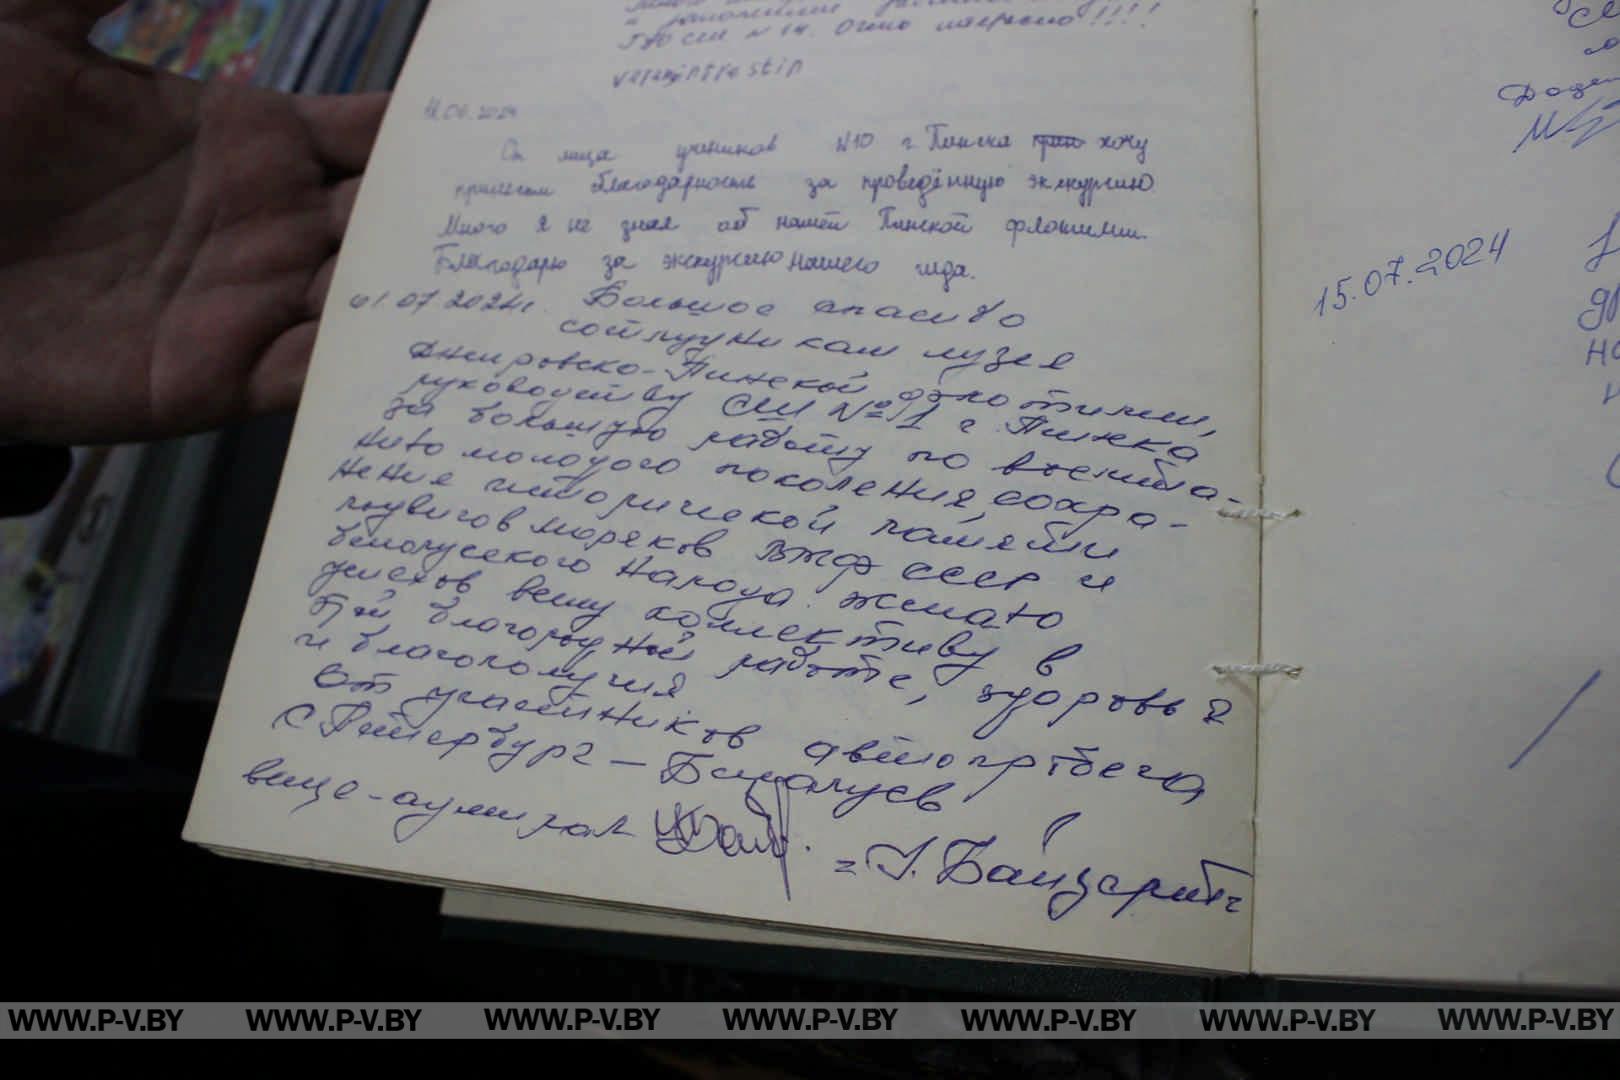 ГУО СШ № 14. Очень интересно!!!!
от лица учеников №10 г. Пинска хочу
принести благодарность за проведённую экскурсию
Много я не знал об нашей Пинской флотилии.
Благодарю за экскурсию нашего гида.
01.07.2024г. Большое спасибо
сотрудникам музея
Днепровско-Пинской флотилии,
руководству СШ №1 г. Пинска
за большую работу по воспита-
нию молодого поколения, сохра-
нения исторической памяти
подвигов моряков ВМФ СССР и
белорусского народа. Желаю
успехов вашу коллективу в
благородной работе, здоровья
и благополучия
От участников автопробега,
С Петербург – Беларусь
вице-адмирал
15.07.2024
WWW.P-V.BY WWW.P-V.BY WWW.P-V.BY WWW.P-V.BY WWW.P-V.BY WWW.P-V.BY WWW.P-V.BY